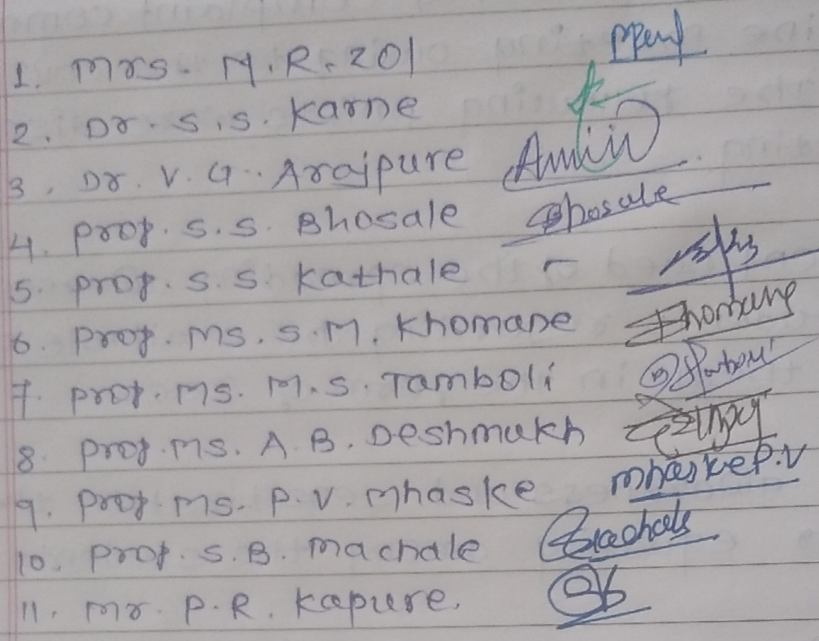 1. Mrs. M.R. Zol
2. Dr. S.S. Karne
3. Dr. V.G. Arajpure
4. Prof. S.S. Bhosale Bhosale
5. Prof. S.S. Kathale
6. Prof. Ms. S.M. Khomane Khomane
7. Prof. Ms. M.S. Tamboli
8. Prof. Ms. A.B. Deshmukh
9. Prof. Ms. P.V. Mhaske Mhaske P.V
10. Prof. S.B. Machale
11. Mr. P.R. Kapure.